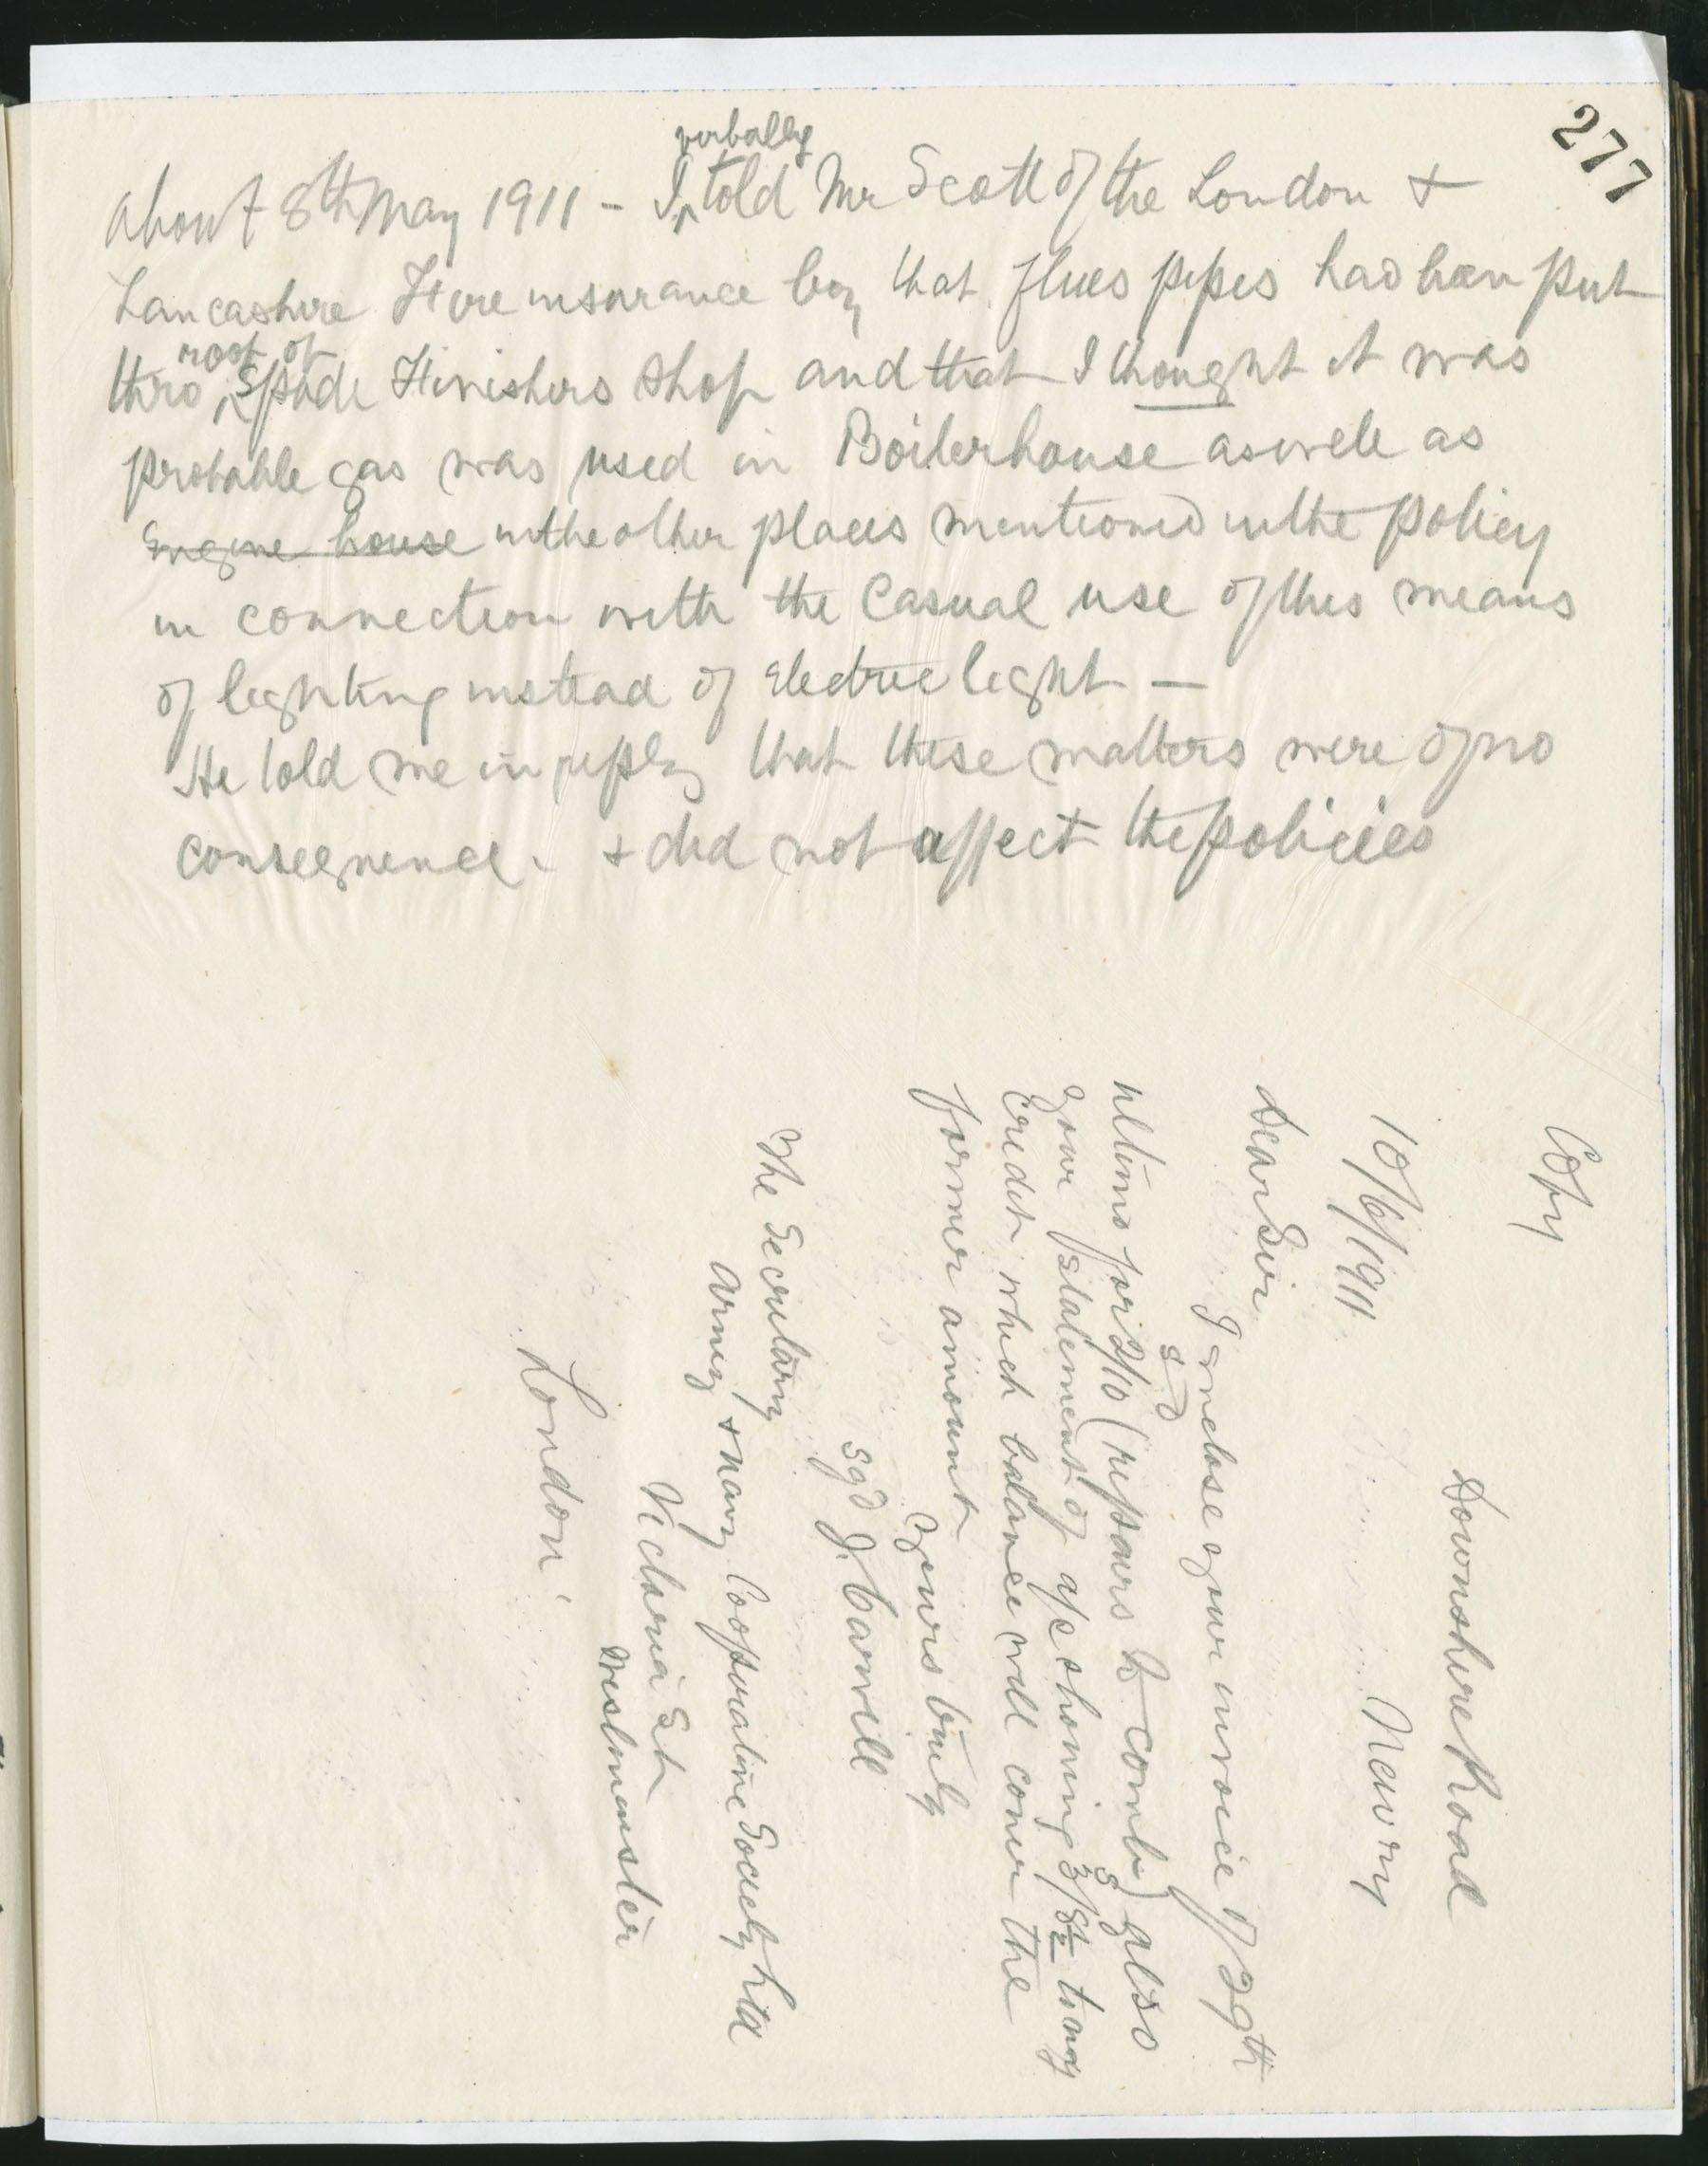 277
About 8th May 1911 - I verbally told Mr Scott of the London +
Lancashire Fire insurance Coy that flues pipes had been put
thro roof of Spade Finishers shop and that I thought it was
probable gas was used in Boilerhouse aswell as
Engine house in the other places mentioned in the policy
in connection with the Casual use of this means
of lighting instead of Electric light —
He told me in reply that these matters were of no
consequence. + did not affect the policies
Copy
Downshire Road
Newry
10/6/1911
Dear Sir
I enclose your invoice of 29th
ultimo for 2s/10d (repairs to comb) also
your statement of a/c showing 3s/8½d to my
credit which balance will cover the
former amount
Yours truly
sgd J. Carvill
The Secretary
Army + Navy Cooperative Society Ltd
Victoria St
Westminster
London